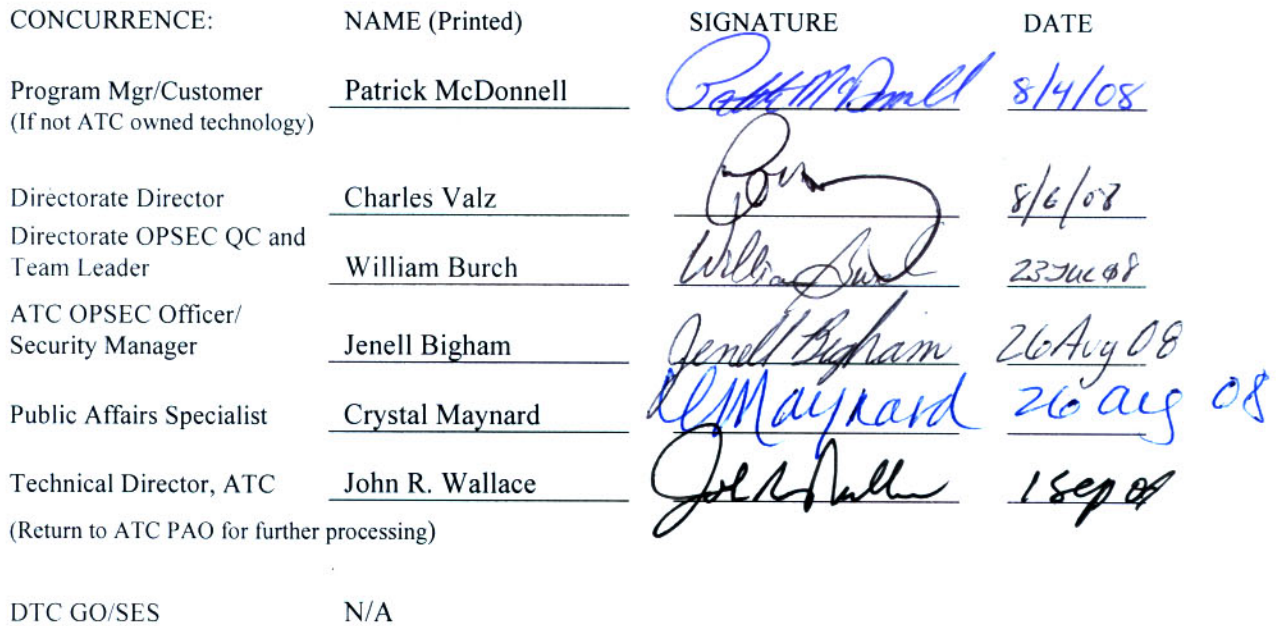 CONCURRENCE: NAME (Printed) SIGNATURE DATE
Program Mgr/Customer Patrick McDonnell 8/4/08
(If not ATC owned technology)
Directorate Director Charles Valz 8/6/08
Directorate OPSEC QC and
Team Leader William Burch William Burch 23 Jul 08
ATC OPSEC Officer/
Security Manager Jenell Bigham Jenell Bigham 26 Aug 08
Public Affairs Specialist Crystal Maynard CMaynard 26 aug 08
Technical Director, ATC John R. Wallace 1 Sep 08
(Return to ATC PAO for further processing)
DTC GO/SES N/A